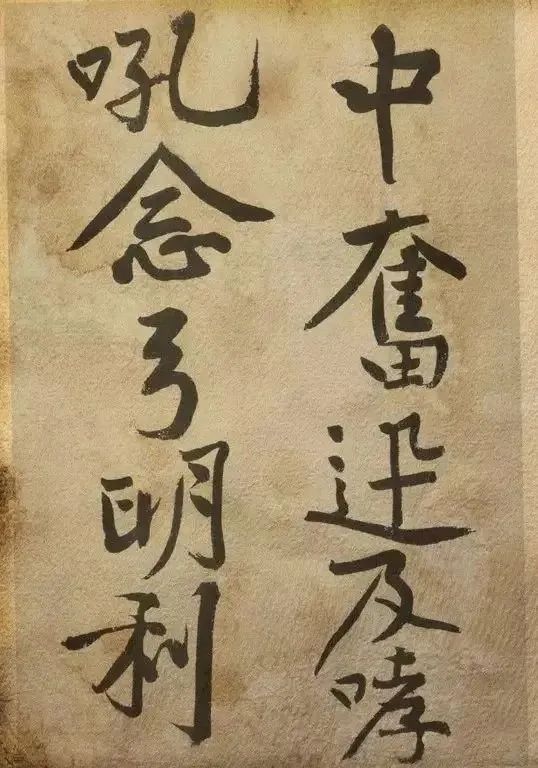 中奮迅及哮
吼念弓明利